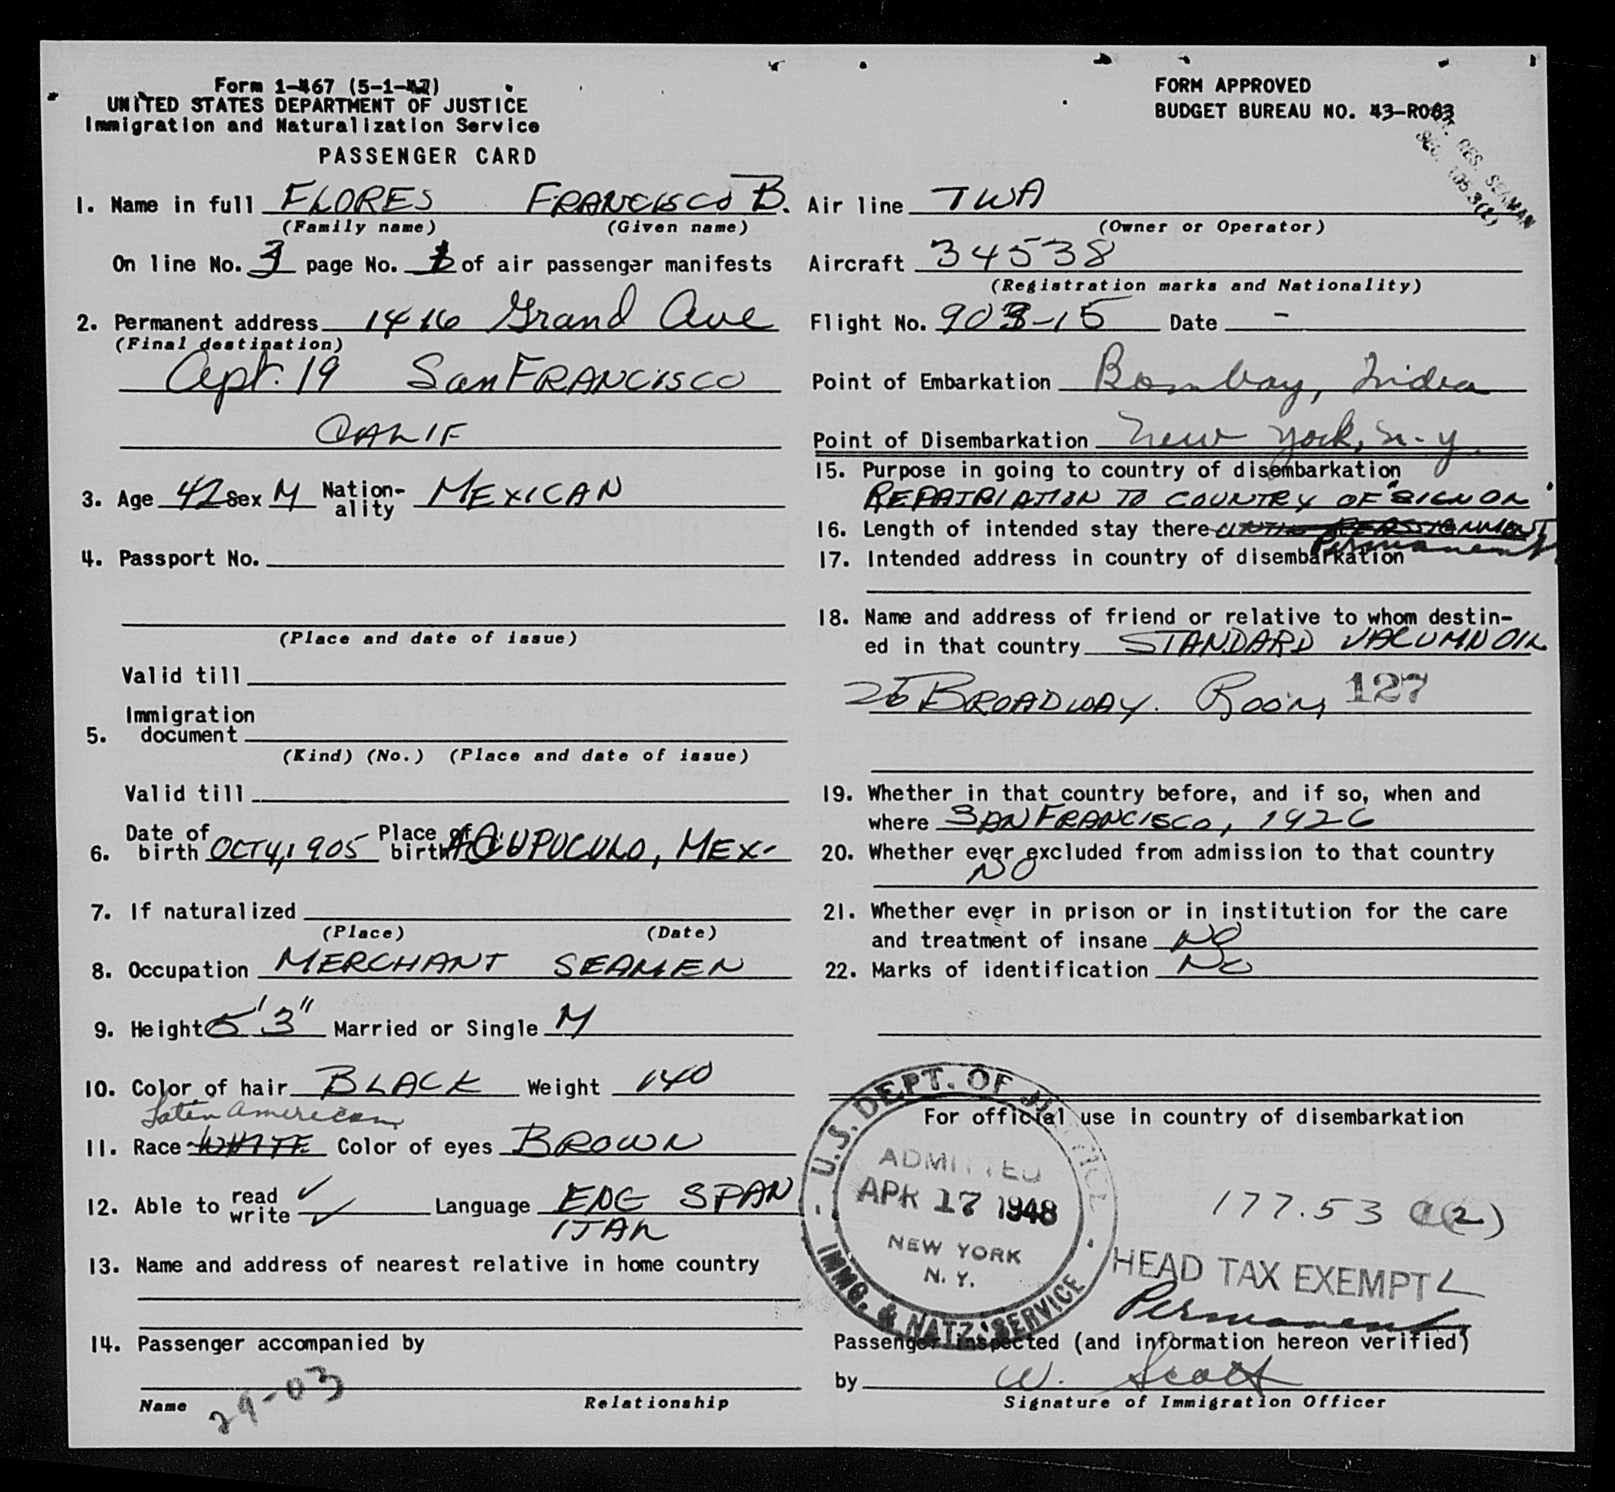 Form 1-467 (5-1-47)
UNITED STATES DEPARTMENT OF JUSTICE
Immigration and Naturalization Service
PASSENGER CARD
FORM APPROVED
BUDGET BUREAU NO. 43-R083
RES. SEAMAN
SEC. 105.3(2)
1. Name in full FLORES FRANCISCO B.
(Family name) (Given name)
On line No. 3 page No. of air passenger manifests
2. Permanent address 1416 Grand Ave
(Final destination)
Apt. 19 San FRANCISCO
CALIF
3. Age 42 Sex M Nation-ality MEXICAN
4. Passport No.
(Place and date of issue)
Valid till
5. Immigration document
(Kind) (No.) (Place and date of issue)
Valid till
6. Date of birth OCT 4, 1905 Place of birth ACUPUCULO, MEX-
7. If naturalized
(Place) (Date)
8. Occupation MERCHANT SEAMEN
9. Height 5'3" Married or Single M
10. Color of hair BLACK Weight 140
Latin American
11. Race WHITE Color of eyes BROWN
12. Able to read ✓ write ✓ Language ENG SPAN
ITAL
13. Name and address of nearest relative in home country
14. Passenger accompanied by
Name Relationship
29-03
Air line TWA
(Owner or Operator)
Aircraft 34538
(Registration marks and Nationality)
Flight No. 903-15 Date -
Point of Embarkation Bombay, India
Point of Disembarkation New York, N.Y.
15. Purpose in going to country of disembarkation
REPATRIATION TO COUNTRY OF "SIGN ON"
16. Length of intended stay there UNTIL REASSIGNMENT
Permanent
17. Intended address in country of disembarkation
18. Name and address of friend or relative to whom destin-
ed in that country STANDARD VACUMN OIL
26 BROADWAY. Room 127
19. Whether in that country before, and if so, when and
where SAN FRANCISCO, 1926
20. Whether ever excluded from admission to that country
NO
21. Whether ever in prison or in institution for the care
and treatment of insane NO
22. Marks of identification NO
For official use in country of disembarkation
U.S. DEPT. OF JUSTICE
ADMITTED
APR 17 1948
NEW YORK
N. Y.
IMMG. & NATZ. SERVICE
177.53 (2)
HEAD TAX EXEMPT
Permanent
Passenger inspected (and information hereon verified)
by W. Scott
Signature of Immigration Officer